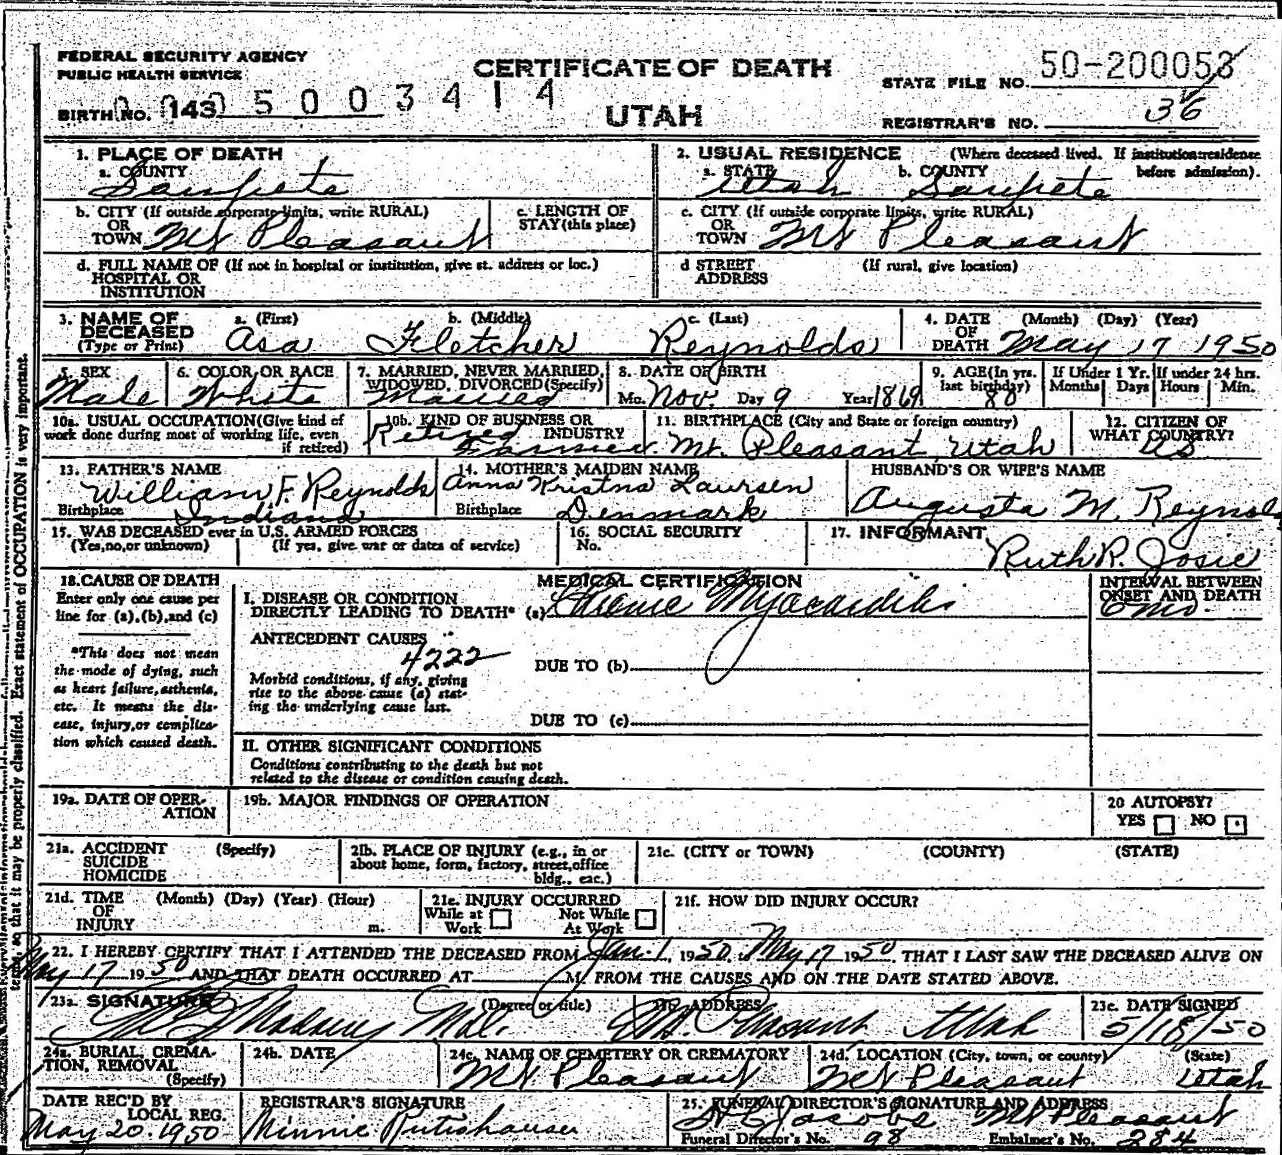 FEDERAL SECURITY AGENCY
PUBLIC HEALTH SERVICE
CERTIFICATE OF DEATH
STATE FILE NO. 50-200053
BIRTH NO. 143 5003414
UTAH
REGISTRAR'S NO. 36
1. PLACE OF DEATH
a. COUNTY Sanpete
2. USUAL RESIDENCE (Where deceased lived. If institution:residence before admission).
a. STATE Utah b. COUNTY Sanpete
b. CITY (If outside corporate limits, write RURAL) OR TOWN Mt Pleasant
c. LENGTH OF STAY (this place)
c. CITY (If outside corporate limits, write RURAL) OR TOWN Mt Pleasant
d. FULL NAME OF (If not in hospital or institution, give st. address or loc.)
HOSPITAL OR
INSTITUTION
d STREET ADDRESS (If rural, give location)
3. NAME OF DECEASED (Type or Print)
a. (First) b. (Middle) c. (Last)
Asa Fletcher Reynolds
4. DATE OF DEATH (Month) (Day) (Year)
May 17 1950
5. SEX Male
6. COLOR OR RACE White
7. MARRIED, NEVER MARRIED, WIDOWED, DIVORCED (Specify) Married
8. DATE OF BIRTH
Mo. Nov. Day 9 Year 1869
9. AGE (In yrs. last birthday) 80
If Under 1 Yr. Months Days
If under 24 hrs. Hours Min.
10a. USUAL OCCUPATION (Give kind of work done during most of working life, even if retired)
10b. KIND OF BUSINESS OR INDUSTRY
Retired Farmer
11. BIRTHPLACE (City and State or foreign country)
Mt. Pleasant, Utah
12. CITIZEN OF WHAT COUNTRY? US
13. FATHER'S NAME
William F. Reynolds
Birthplace Indiana
14. MOTHER'S MAIDEN NAME
Anna Kristna Laursen
Birthplace Denmark
HUSBAND'S OR WIFE'S NAME
Augusta M. Reynol
15. WAS DECEASED ever in U.S. ARMED FORCES
(Yes, no, or unknown) (If yes, give war or dates of service)
16. SOCIAL SECURITY No.
17. INFORMANT
Ruth R. Josie
18. CAUSE OF DEATH
Enter only one cause per line for (a), (b), and (c)
*This does not mean the mode of dying, such as heart failure, asthenia, etc. It means the disease, injury, or complication which caused death.
MEDICAL CERTIFICATION
I. DISEASE OR CONDITION DIRECTLY LEADING TO DEATH* (a) Chronic Myocarditis
INTERVAL BETWEEN ONSET AND DEATH
6 mo.
ANTECEDENT CAUSES
4222
DUE TO (b)
Morbid conditions, if any, giving rise to the above cause (a) stating the underlying cause last.
DUE TO (c)
II. OTHER SIGNIFICANT CONDITIONS
Conditions contributing to the death but not related to the disease or condition causing death.
19a. DATE OF OPERATION
19b. MAJOR FINDINGS OF OPERATION
20 AUTOPSY?
YES NO
21a. ACCIDENT SUICIDE HOMICIDE (Specify)
21b. PLACE OF INJURY (e.g., in or about home, form, factory, street, office bldg., eac.)
21c. (CITY or TOWN) (COUNTY) (STATE)
21d. TIME OF INJURY (Month) (Day) (Year) (Hour) m.
21e. INJURY OCCURRED
While at Work Not While At Work
21f. HOW DID INJURY OCCUR?
22. I HEREBY CERTIFY THAT I ATTENDED THE DECEASED FROM Jan. 1, 1950 May 17 1950 THAT I LAST SAW THE DECEASED ALIVE ON
May 17 1950 AND THAT DEATH OCCURRED AT M, FROM THE CAUSES AND ON THE DATE STATED ABOVE.
23a. SIGNATURE (Degree or title) ADDRESS 23c. DATE SIGNED
Madsen M.D. Mt Pleasant Utah 5/18/50
24a. BURIAL, CREMATION, REMOVAL (Specify)
24b. DATE
24c. NAME OF CEMETERY OR CREMATORY
Mt Pleasant
24d. LOCATION (City, town, or county) (State)
Mt Pleasant Utah
DATE REC'D BY LOCAL REG.
May 20. 1950
REGISTRAR'S SIGNATURE
Minnie Rutishauser
25. FUNERAL DIRECTOR'S SIGNATURE AND ADDRESS
Jacobs Mt Pleasant
Funeral Director's No. 98 Embalmer's No. 284
so that it may be properly classified. Exact statement of OCCUPATION is very important.